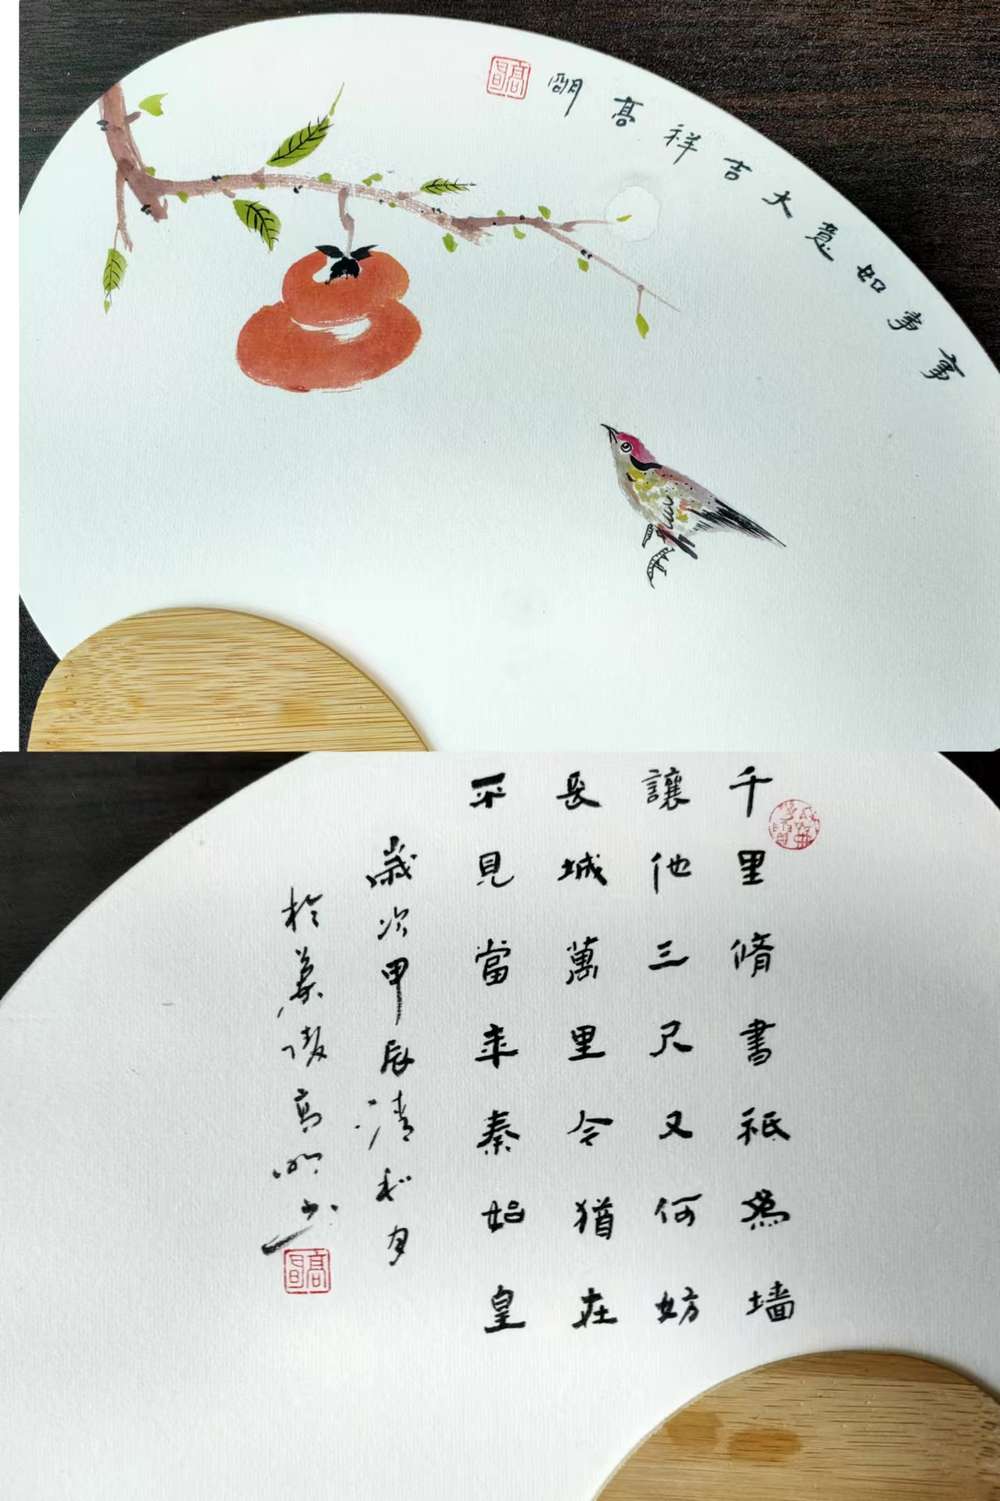 事事如意大吉祥高朙
千里脩書祗為墙
讓他三尺又何妨
長城萬里今猶在
不見當年秦始皇
歲次甲辰清和月
於陵高明书